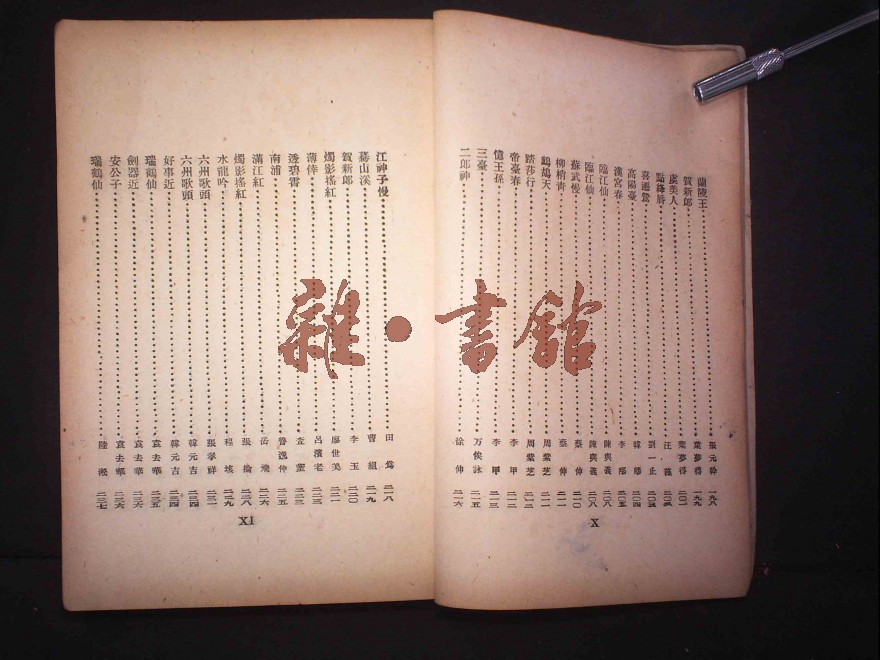 蘭陵王 張元幹 一九八
賀新郎 葉夢得 一九九
虞美人 葉夢得 二〇一
點絳唇 汪藻 二〇二
喜遷鶯 劉一止
高陽臺 韓 二〇四
漢宮春 李邴 二〇五
臨江仙 陳與義 二〇八
臨江仙 陳與義 二〇八
蘇武慢 蔡伸 二一〇
柳梢青 蔡伸 二一一
鷓鴣天 周紫芝 二一一
踏莎行 周紫芝 二一二
帝臺春 李甲 二一三
憶王孫 李甲 二一三
三臺 万俟詠 二一五
二郎神 徐伸 二一六
X
江神子慢 田爲 二一八
驀山溪 曹組 二一九
賀新郎 李玉 二二〇
燭影搖紅 廖世美 二二一
薄倖 呂濱老 二二二
透碧霄 查荎 二二三
南浦 魯逸仲 二二五
滿江紅 岳飛 二二六
燭影搖紅 張掄 二二八
水龍吟 程垓 二二九
六州歌頭 張孝祥 二三一
六州歌頭 韓元吉 二三四
好事近 韓元吉 二三四
瑞鶴仙 袁去華 二三五
劍器近 袁去華 二三六
安公子 袁去華 二三六
瑞鶴仙 陸淞 二三七
XI
雜·書館